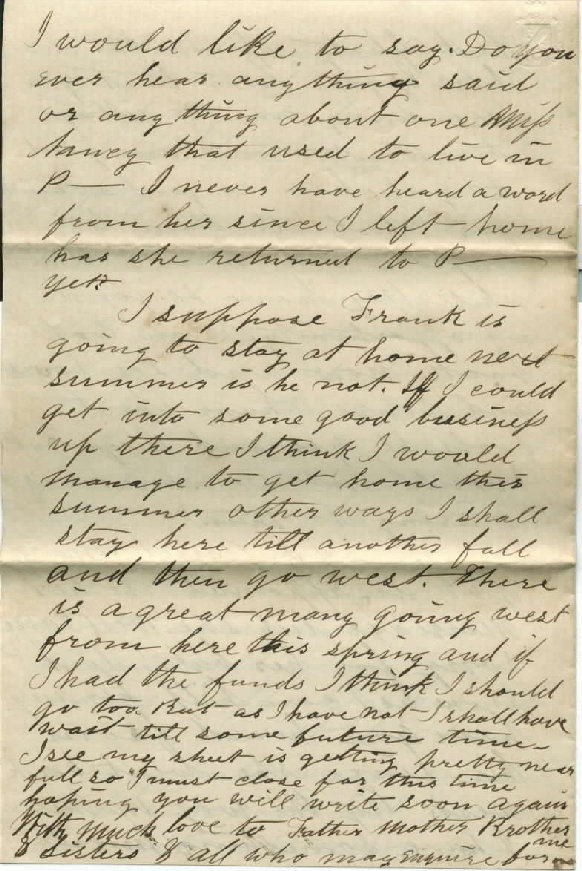 I would like to say. Do you
ever hear anything said
or any thing about one Miss
Nancy that used to live in
P— I never have heard a word
from her since I left home
has she returned to P—
yet?
I suppose Frank is
going to stay at home next
summer is he not. If I could
get into some good business
up there I think I would
manage to get home this
summer other ways I shall
stay here till another fall
and then go west. There
is a great many going west
from here this spring and if
I had the funds I think I should
go too. But as I have not I shall have
wait till some future time—
I see my sheet is getting pretty near
full so I must close for this time
hoping you will write soon again
With much love to Father Mother Brother
& sisters & all who may enquire for me